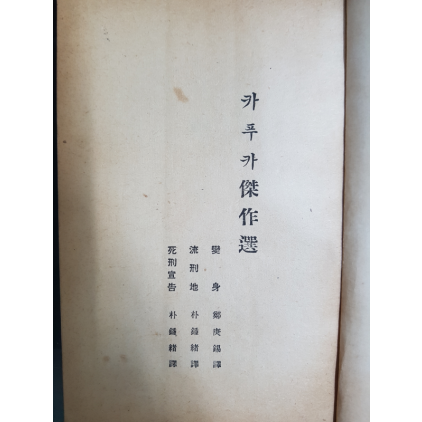 카푸카傑作選
變身 鄭庚錫譯
流刑地 朴鍾緖譯
死刑宣告 朴鍾緖譯